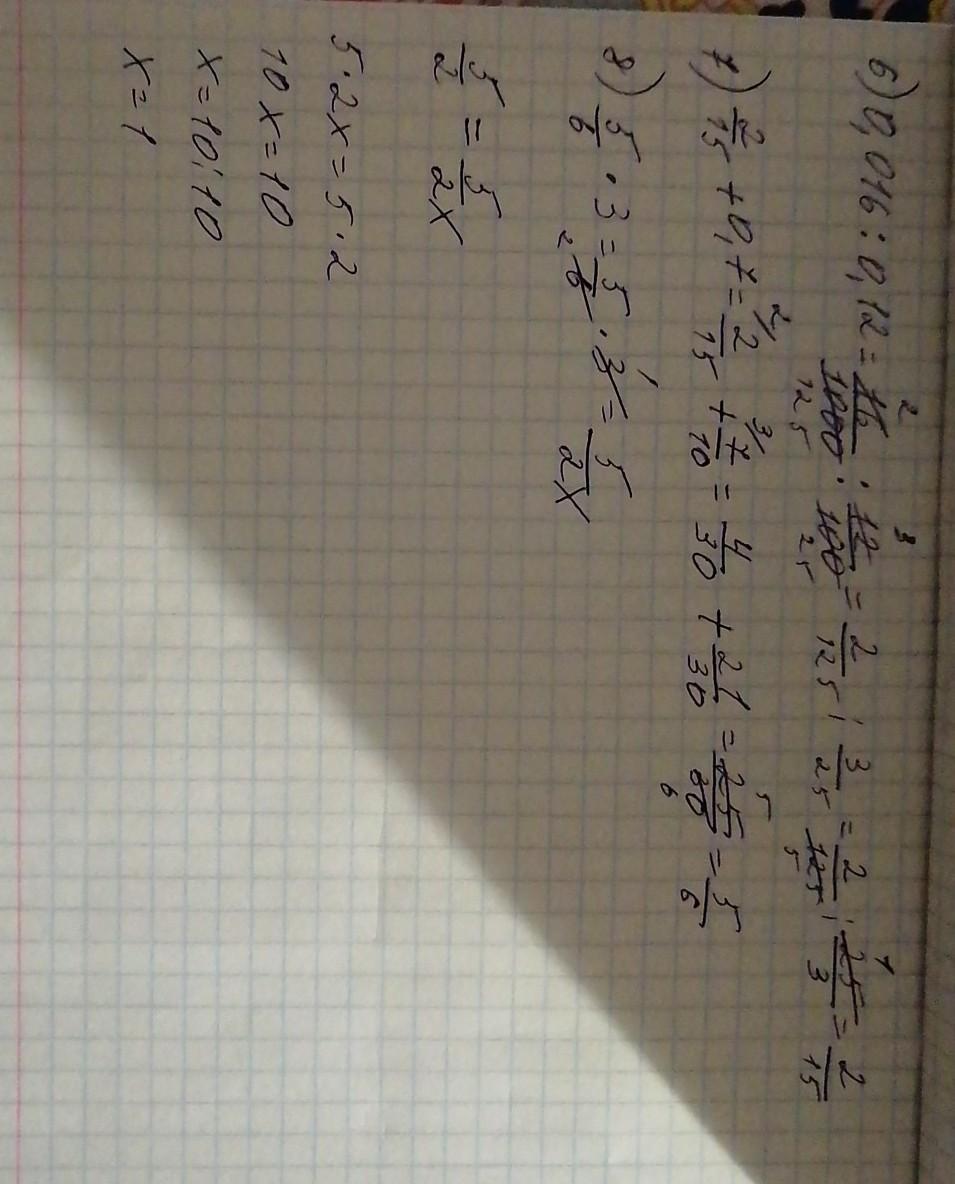 6) 0,016 : 0,12 = 16/1000 2 125 : 12/100 3 25 = 2/125 : 3/25 = 2/125 5 · 25/3 1 = 2/15
7) 2/15 + 0,7 = 2/15 2/ + 7/10 3/ = 4/30 + 21/30 = 25/30 5 6 = 5/6
8) 5/6 · 3 = 5/6 2 · 3 1 = 5/2x
5/2 = 5/2x
5 · 2x = 5 · 2
10x = 10
x = 10 : 10
x = 1